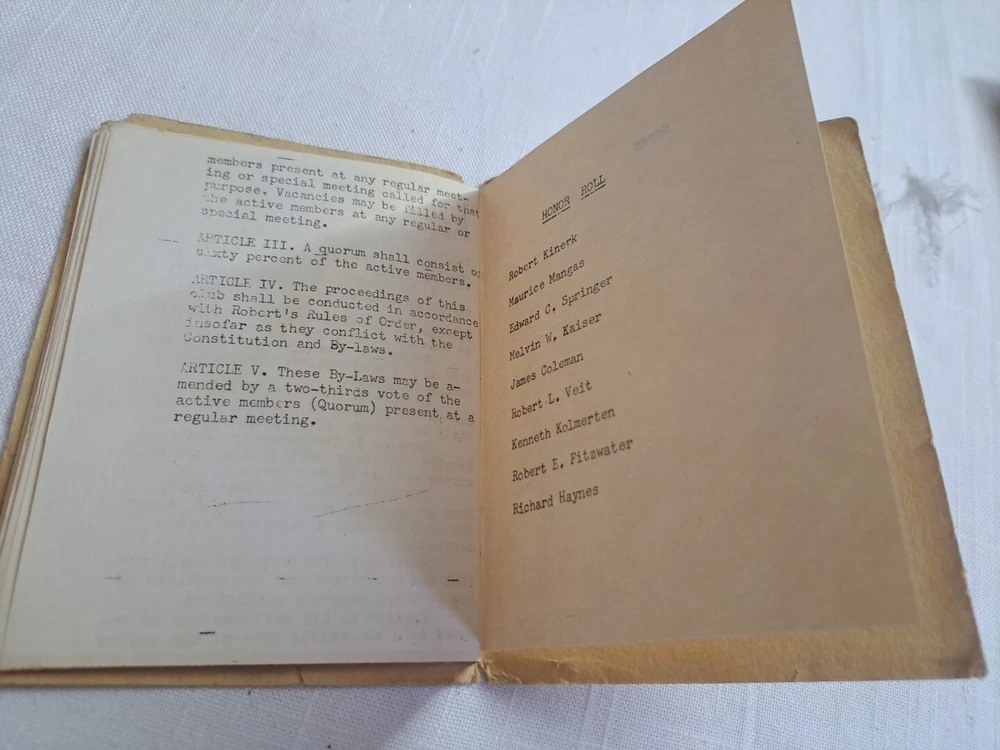 members present at any regular meet-
ing or special meeting called for that
purpose. Vacancies may be filled by
the active members at any regular or
special meeting.
ARTICLE III. A quorum shall consist of
sixty percent of the active members.
ARTICLE IV. The proceedings of this
club shall be conducted in accordance
with Robert's Rules of Order, except
insofar as they conflict with the
Constitution and By-laws.
ARTICLE V. These By-Laws may be a-
mended by a two-thirds vote of the
active members (Quorum) present at a
regular meeting.
NOTES
HONOR ROLL
Robert Kinerk
Maurice Mangas
Edward C. Springer
Melvin W. Kaiser
James Coleman
Robert L. Veit
Kenneth Kolmerten
Robert E. Fitzwater
Richard Haynes